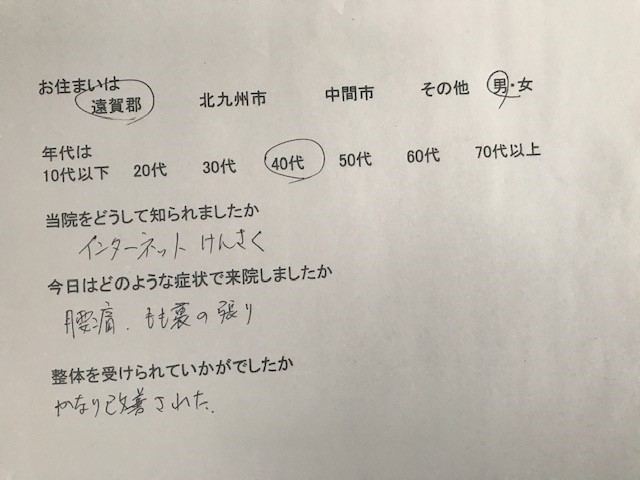 お住まいは
遠賀郡 北九州市 中間市 その他 男・女
年代は
10代以下 20代 30代 40代 50代 60代 70代以上
当院をどうして知られましたか
インターネット けんさく
今日はどのような症状で来院しましたか
腰痛、もも裏の張り
整体を受けられていかがでしたか
かなり改善された。